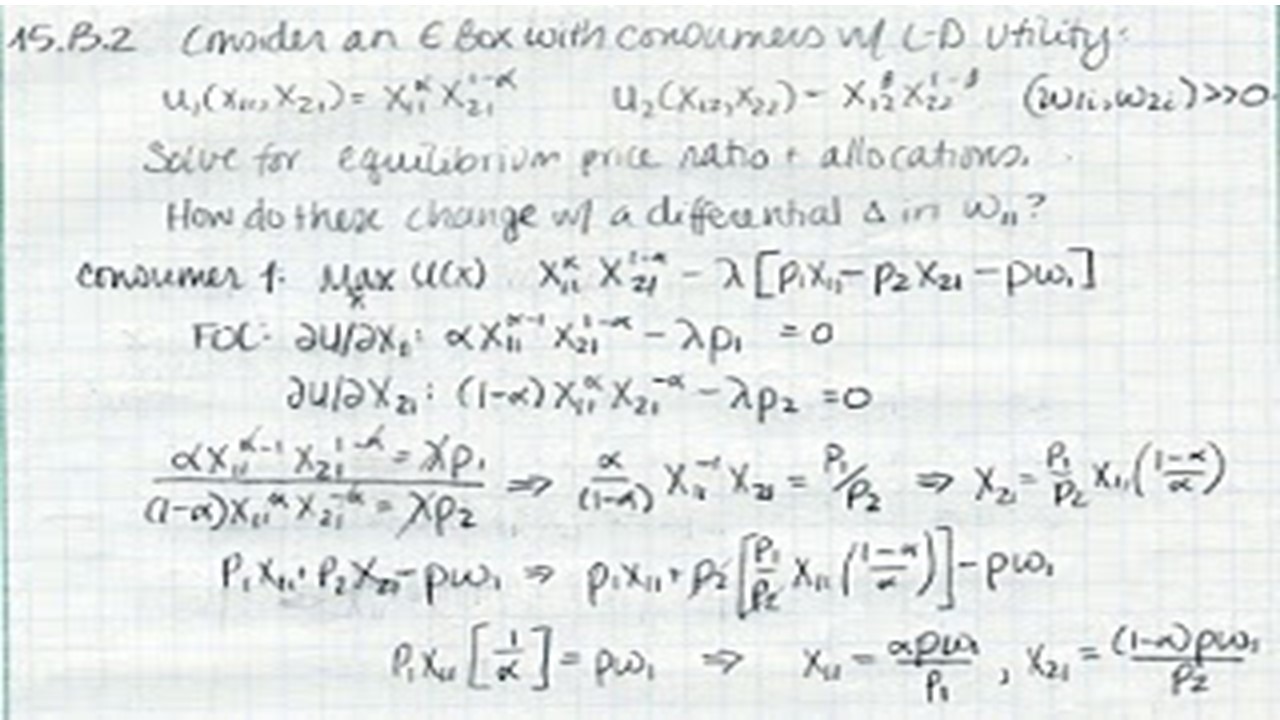 15.B.2 Consider an E Box with consumers w/ C-D Utility:
u₁(x₁₁,x₂₁) = x₁₁^α x₂₁^{1-α} u₂(x₁₂,x₂₂) = x₁₂^β x₂₂^{1-β} (ω₁ᵢ,ω₂ᵢ)>>0
Solve for equilibrium price ratio + allocations.
How do these change w/ a differential Δ in ω₁₁?
consumer 1: Max_x U(x) x₁₁^α x₂₁^{1-α} - λ[p₁x₁₁ - p₂x₂₁ - pω₁]
FOC: ∂U/∂x₁: αx₁₁^{α-1} x₂₁^{1-α} - λp₁ = 0
∂U/∂x₂₁: (1-α)x₁₁^α x₂₁^{-α} - λp₂ = 0
αx₁₁^{α-1} x₂₁^{1-α} = λp₁ / (1-α)x₁₁^α x₂₁^{-α} = λp₂ ⇒ α/(1-α) x₁₁^{-1} x₂₁ = p₁/p₂ ⇒ x₂₁ = p₁/p₂ x₁₁(1-α/α)
p₁x₁₁ + p₂x₂₁ - pω₁ ⇒ p₁x₁₁ + p₂[p₁/p₂ x₁₁(1-α/α)] - pω₁
p₁x₁₁[1/α] = pω₁ ⇒ x₁₁ = αpω₁/p₁ , x₂₁ = (1-α)pω₁/p₂